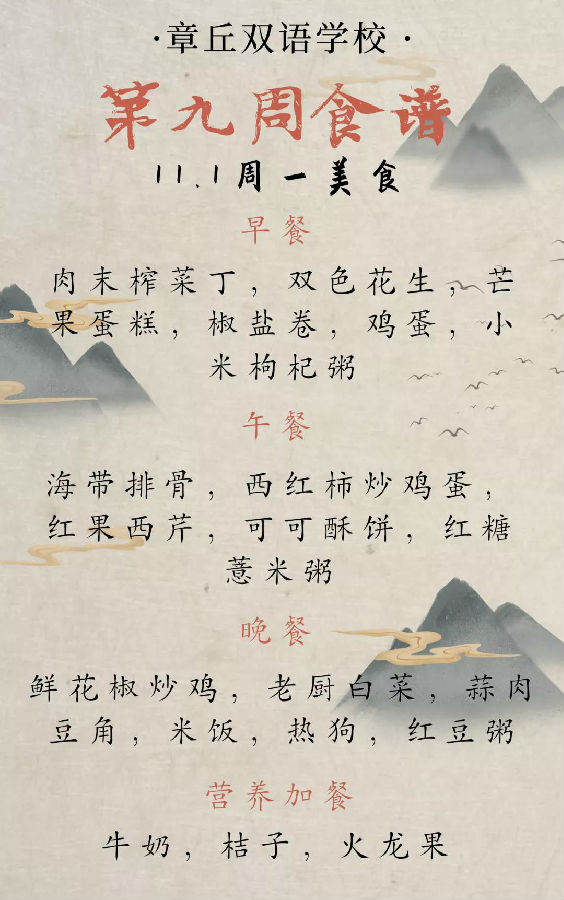 ·章丘双语学校·
第九周食谱
11.1周一美食
早餐
肉末榨菜丁，双色花生，芒
果蛋糕，椒盐卷，鸡蛋，小
米枸杞粥
午餐
海带排骨，西红柿炒鸡蛋，
红果西芹，可可酥饼，红糖
薏米粥
晚餐
鲜花椒炒鸡，老厨白菜，蒜肉
豆角，米饭，热狗，红豆粥
营养加餐
牛奶，桔子，火龙果